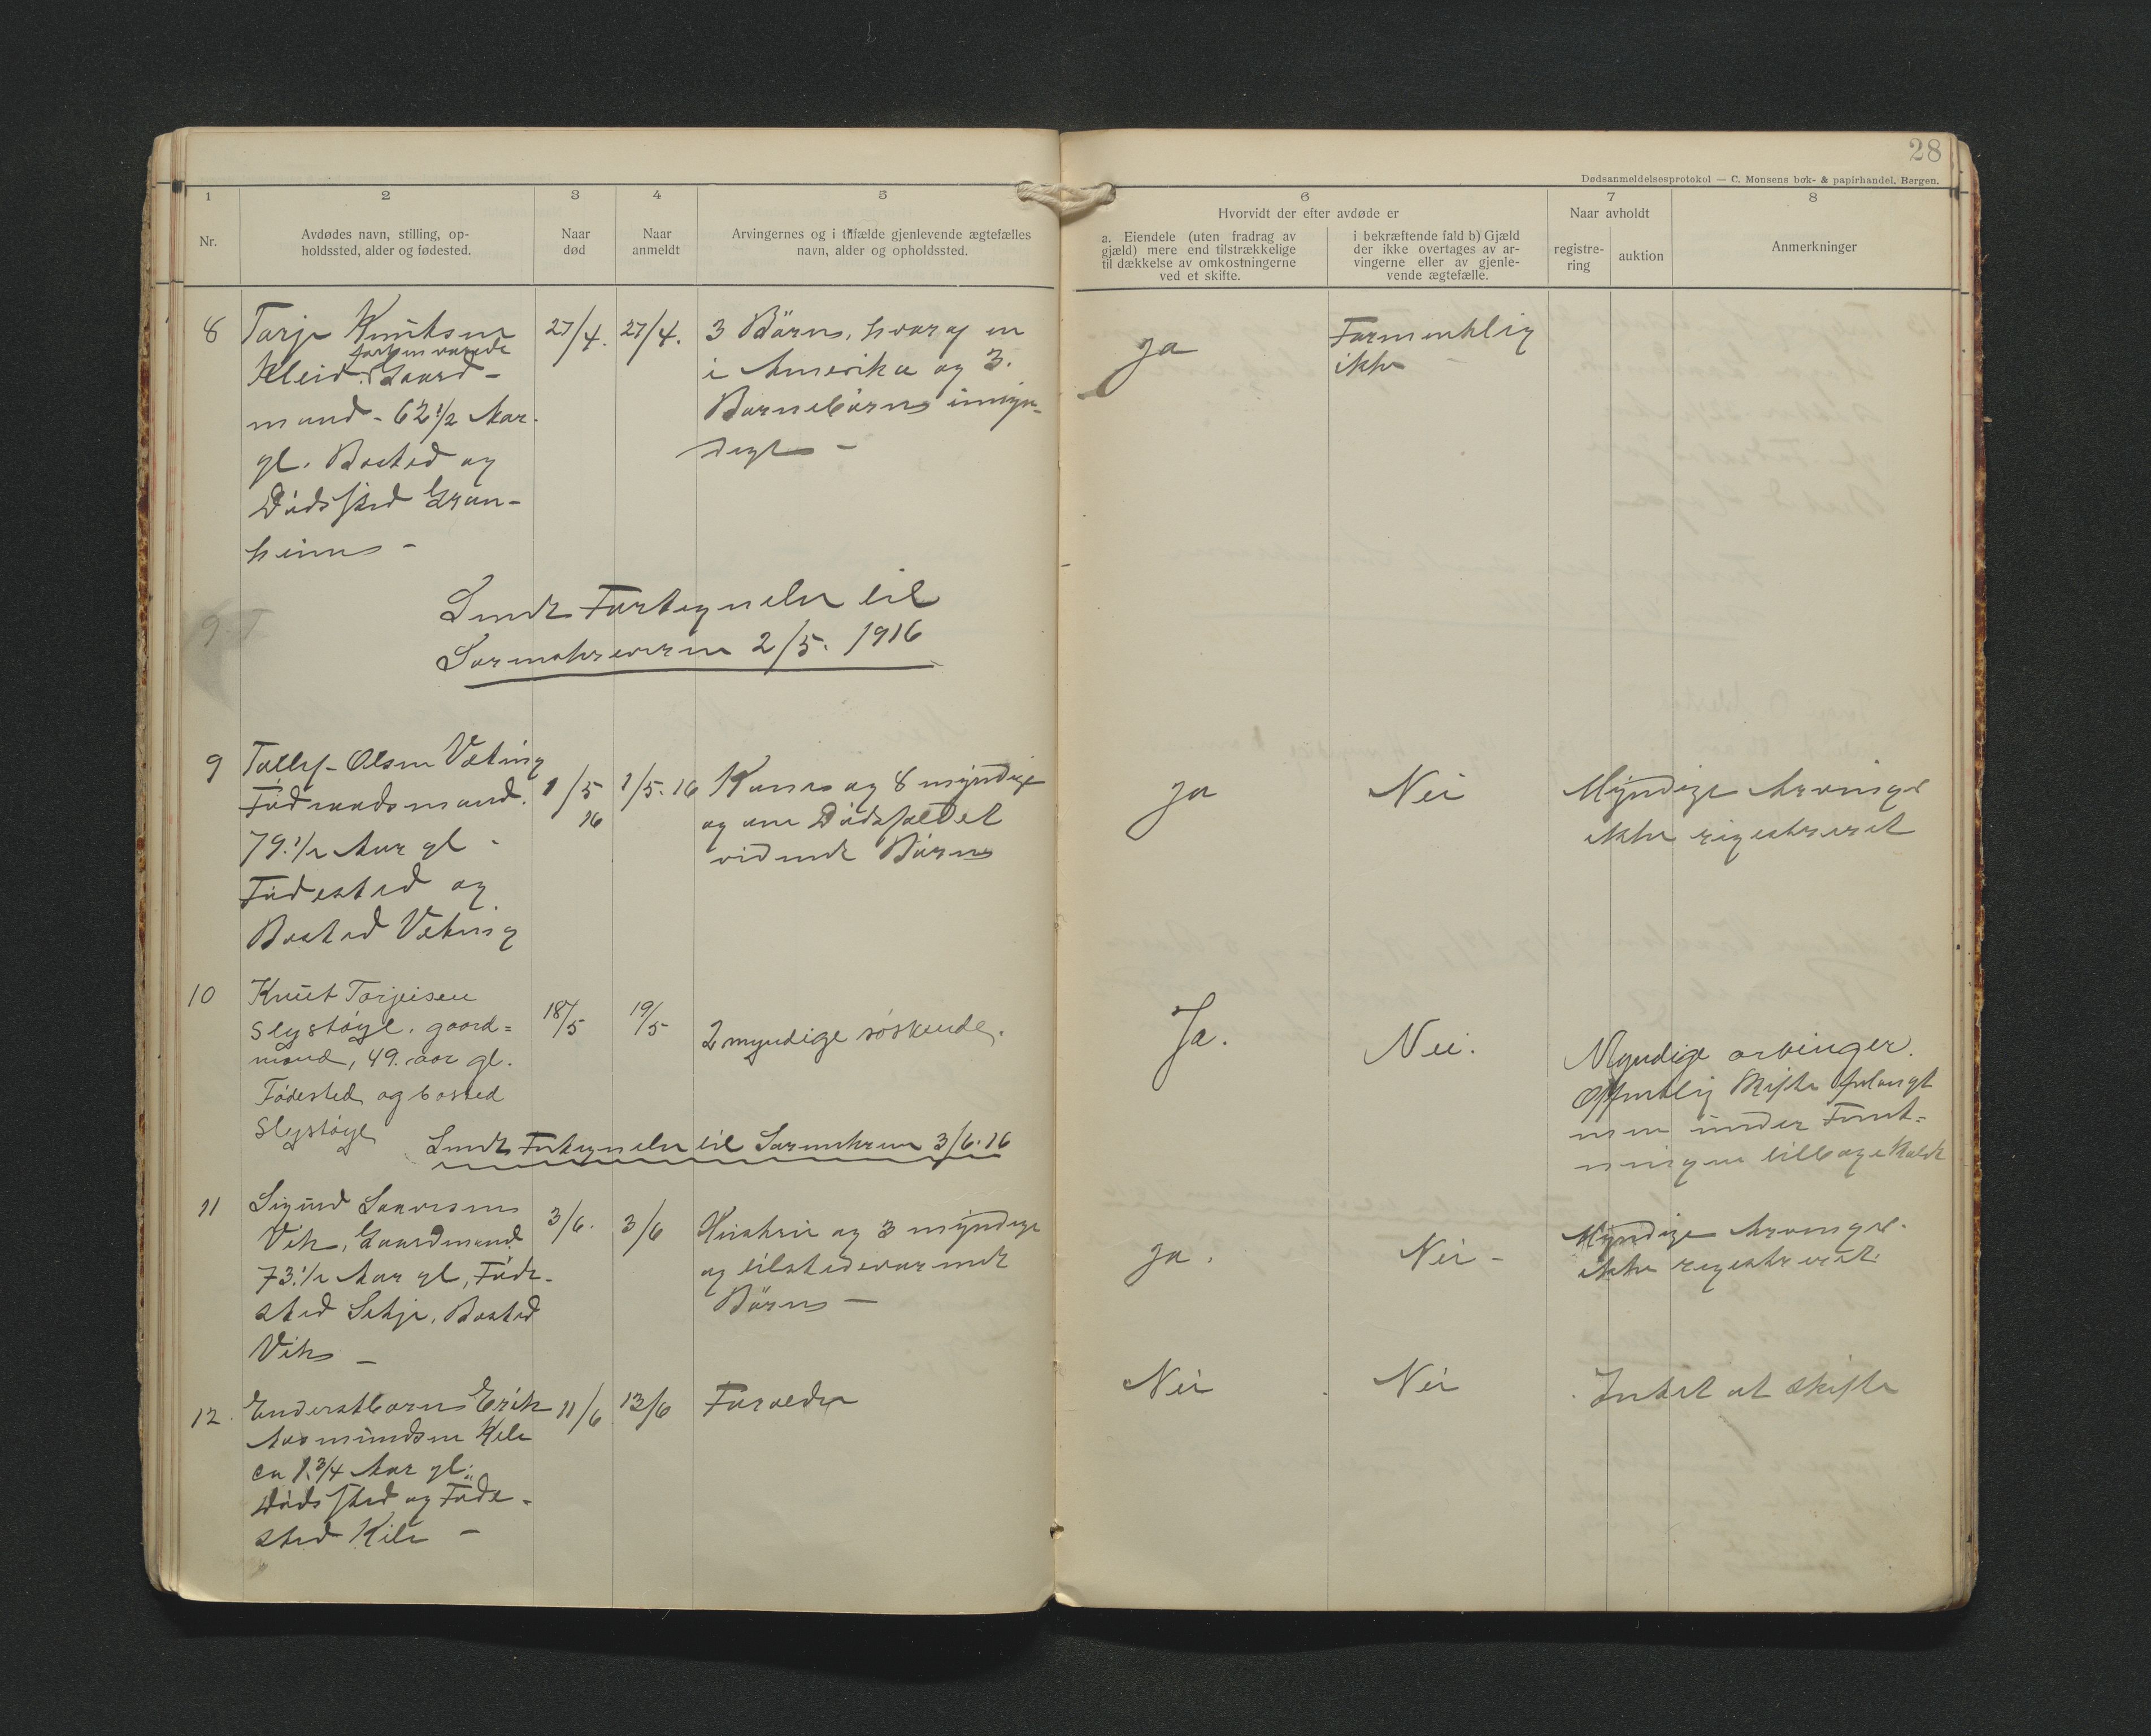 28
Dødsanmeldelsesprotokol — C. Monsens bok- & papirhandel, Bergen.
1
2
3
4
5
6
7
8
Nr.
Avdødes navn, stilling, op-
holdssted, alder og fødested.
Naar
død
Naar
anmeldt
Arvingernes og i tilfælde gjenlevende ægtefælles
navn, alder og opholdssted.
Hvorvidt der efter avdøde er
a. Eiendele (uten fradrag av
gjæld) mere end tilstrækkelige
til dækkelse av omkostningerne
ved et skifte.
i bekræftende fald b) Gjæld
der ikke overtages av ar-
vingerne eller av gjenle-
vende ægtefælle.
Naar avholdt
registre-
ring
auktion
Anmerkninger
8
Tarje Knutsen
forhenværende
Kleiv. Gaard-
mand - 62 1/2 Aar
gl. Bosted og
Dödssted Gran-
heim -
27/4.
27/4.
3 Börn, hvorav en
i Amerika og 3.
Barnebörn umyn-
dige -
Ja
Formentlig
ikke
Sendt Fortegnelse til
Sorenskriveren 2/5. 1916
9
9
Tallef Olsen Væting
Föderaadsmand.
79.1/2 Aar gl.
Födested og
Bosted Væting
1/5
16
1/5. 16
Kone og 8 myndige
og om Dödsfaldet
vidende Börn
Ja
Nei
Myndige Arvinger
ikke registreret
10
Knut Torjeisen
Slystøyl. gaard=
mand, 49. aar gl.
Fødested og bosted
Slystøyl
18/5
19/5
2 myndige søskende.
Ja.
Nei.
Myndige arvinger.
Offentlig Skifte forlangt
men under Forret=
ningen tilbagekaldt
Sendt Fortegnelse til Sorenskriveren 3/6. 16
11
Sigurd Saavesen
Vik, Gaardmand
73.1/2 Aar gl, Föde-
sted Setje, Bosted
Vik -
3/6.
3/6
Hustru og 3 myndige
og tilstedeværende
Börn -
Ja.
Nei -
Myndige Arvinger.
ikke registreret.
12.
Erik
Aasmundsen Kile
ca 1.3/4 Aar gl.
Dödssted og Föde-
sted Kile -
11/6
13/6
Foræedre
Nei
Nei
Intet at skifte